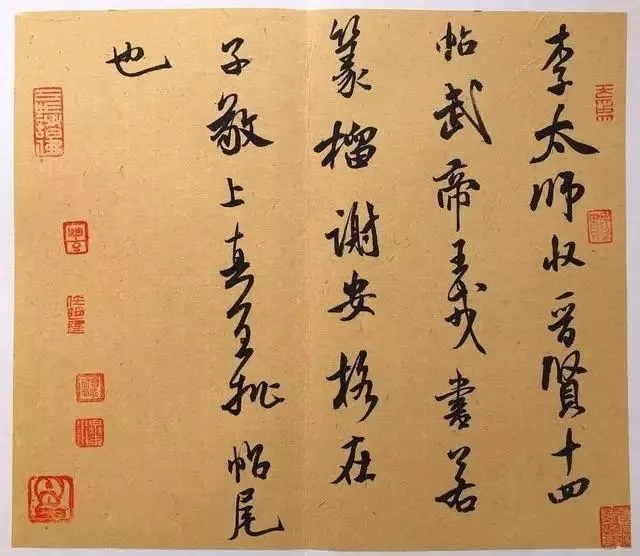 李太师収晋賢十四
帖武帝王戎書若
篆籀謝安格在
子敬上真宜批帖尾
也